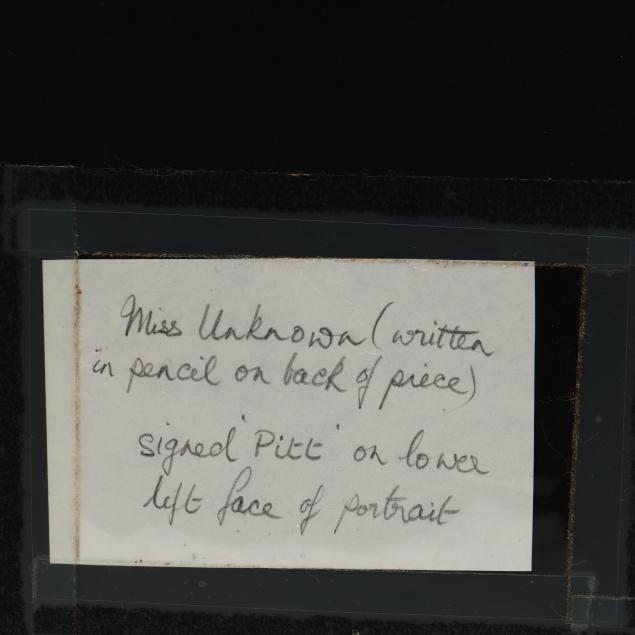 Miss Unknown (written
in pencil on back of piece)
signed 'Pitt' on lower
left face of portrait